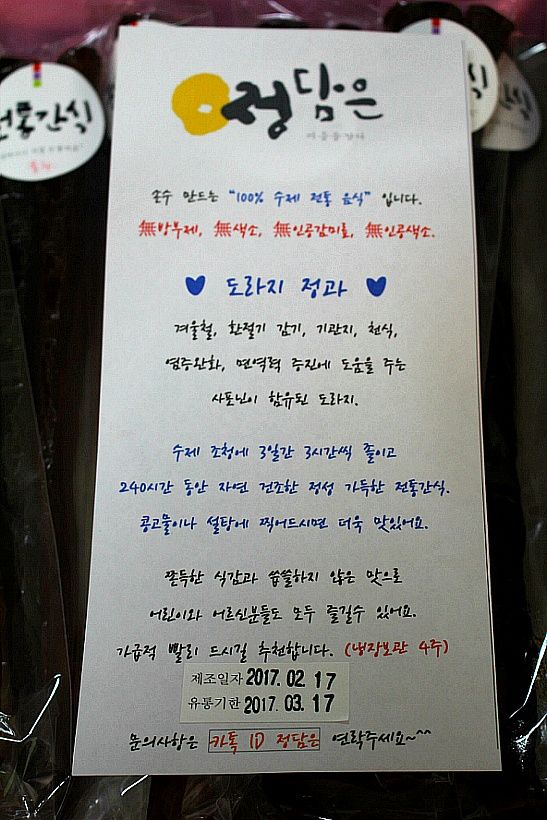 전통간식
정담은
손수 만드는 "100% 수제 전통 음식" 입니다.
無방부제, 無색소, 無인공감미료, 無인공색소.
도라지 정과
겨울철, 환절기 감기, 기관지, 천식,
염증완화, 면역력 증진에 도움을 주는
사포닌이 함유된 도라지.
수제 조청에 3일간 3시간씩 졸이고
240시간 동안 자연 건조한 정성 가득한 전통간식.
콩고물이나 설탕에 찍어드시면 더욱 맛있어요.
쫀득한 식감과 씁쓸하지 않은 맛으로
어린이와 어르신분들도 모두 즐길수 있어요.
가급적 빨리 드시길 추천합니다. (냉장보관 4주)
제조일자 2017.02.17
유통기한 2017.03.17
문의사항은 카톡 ID 정담은 연락주세요~^^